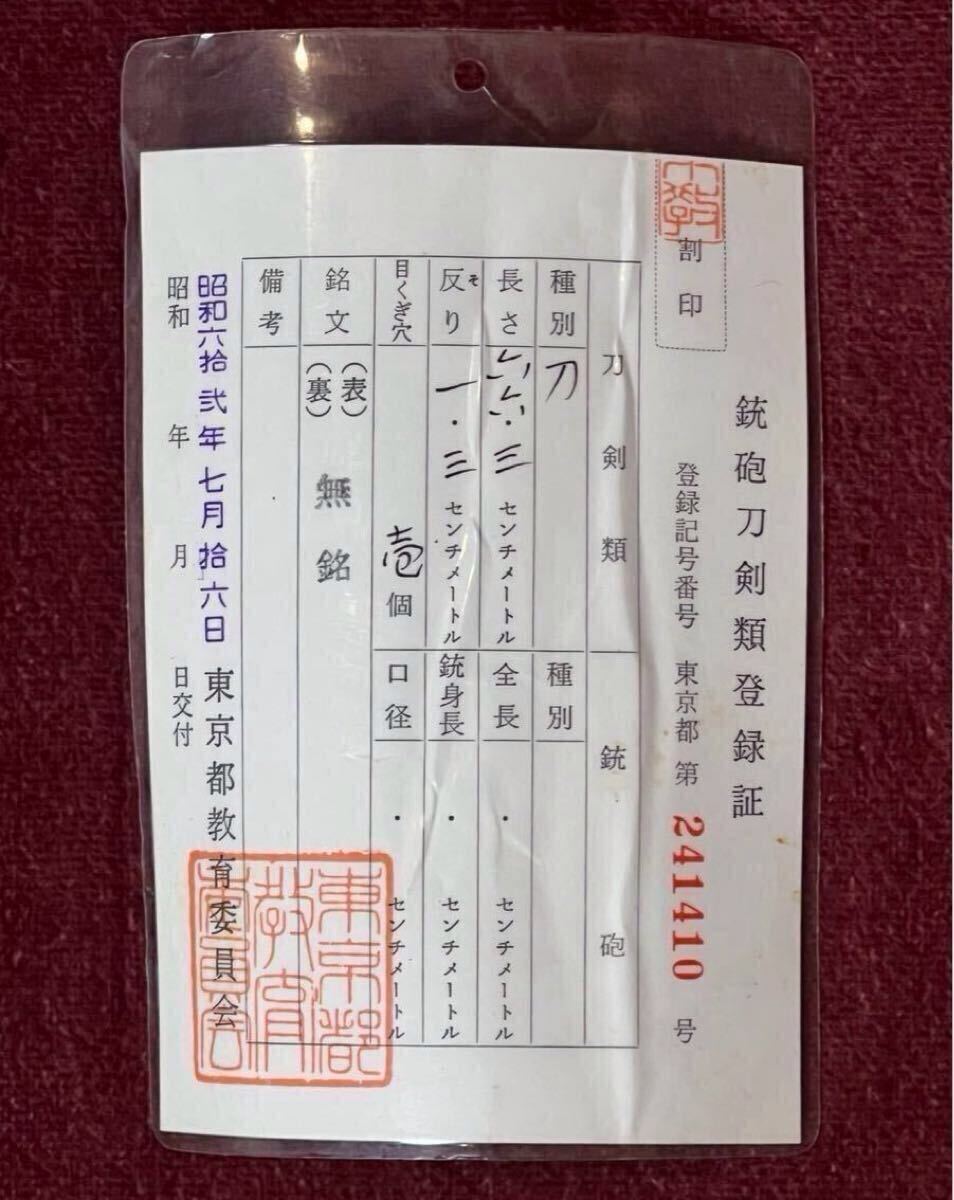 銃砲刀剣類登録証
割印
登録記号番号 東京都 第 241410 号
刀剣類
種別 刀
長さ 六六・三 センチメートル
反り そ 一・三 センチメートル
目くぎ穴 壱個
銃砲
種別
全長 ・ センチメートル
銃身長 ・ センチメートル
口径 ・ センチメートル
銘文 (表) (裏) 無銘
備考
昭和六拾弐年七月拾六日
昭和 年 月 日交付
東京都教育委員会
東京都
教育
委員会